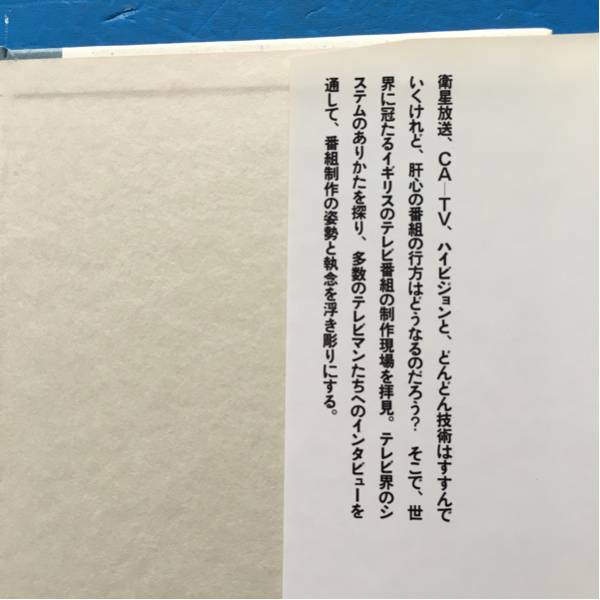 衛星放送、CA—TV、ハイビジョンと、どんどん技術はすすんで
いくけれど、肝心の番組の行方はどうなるのだろう？　そこで、世
界に冠たるイギリスのテレビ番組の制作現場を拝見。テレビ界のシ
ステムのありかたを探り、多数のテレビマンたちへのインタビューを
通して、番組制作の姿勢と執念を浮き彫りにする。